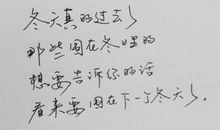 冬天真的过去了
那些困在冬日里的
想要告诉你的话
看来要困在下一个冬天了.